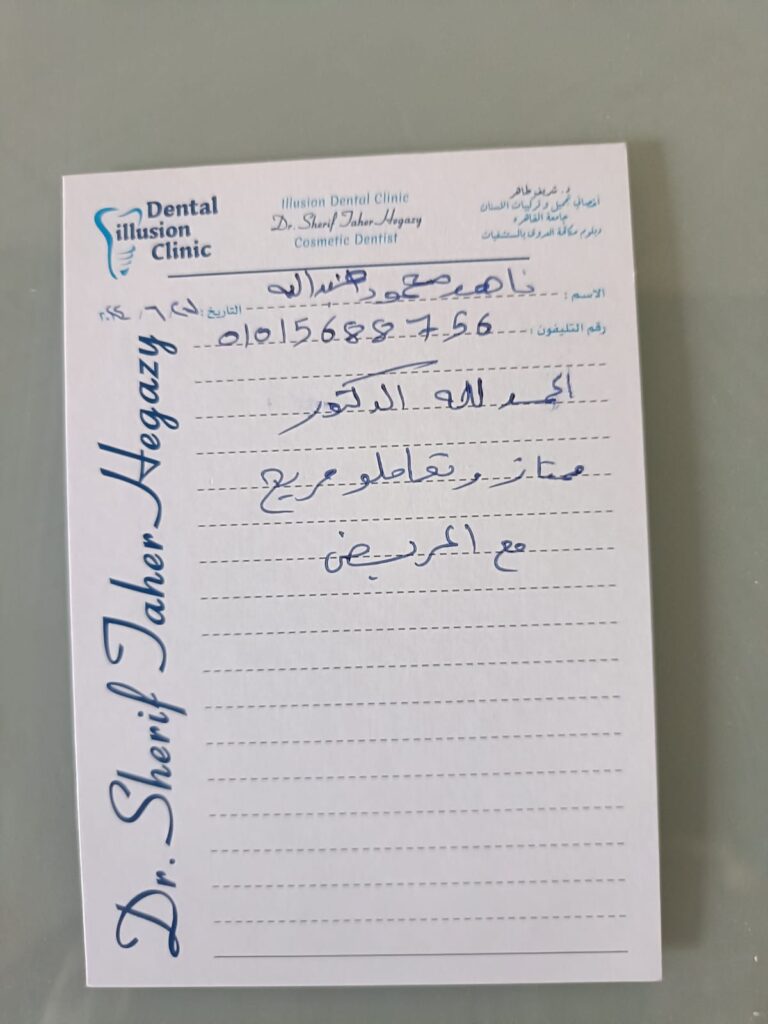 Dental
illusion
Clinic
Illusion Dental Clinic
Dr. Sherif Taher Hegazy
Cosmetic Dentist
د. شريف طاهر
أخصائي تجميل و تركيبات الاسنان
جامعة القاهرة
دبلوم مكافحة العدوى بالمستشفيات
الاسم : ناهد محمود عبدالله
التاريخ :
رقم التليفون : 01015688756
الحمد لله الدكتور
ممتاز وتعاملو مريح
مع المريض
Dr. Sherif Taher Hegazy